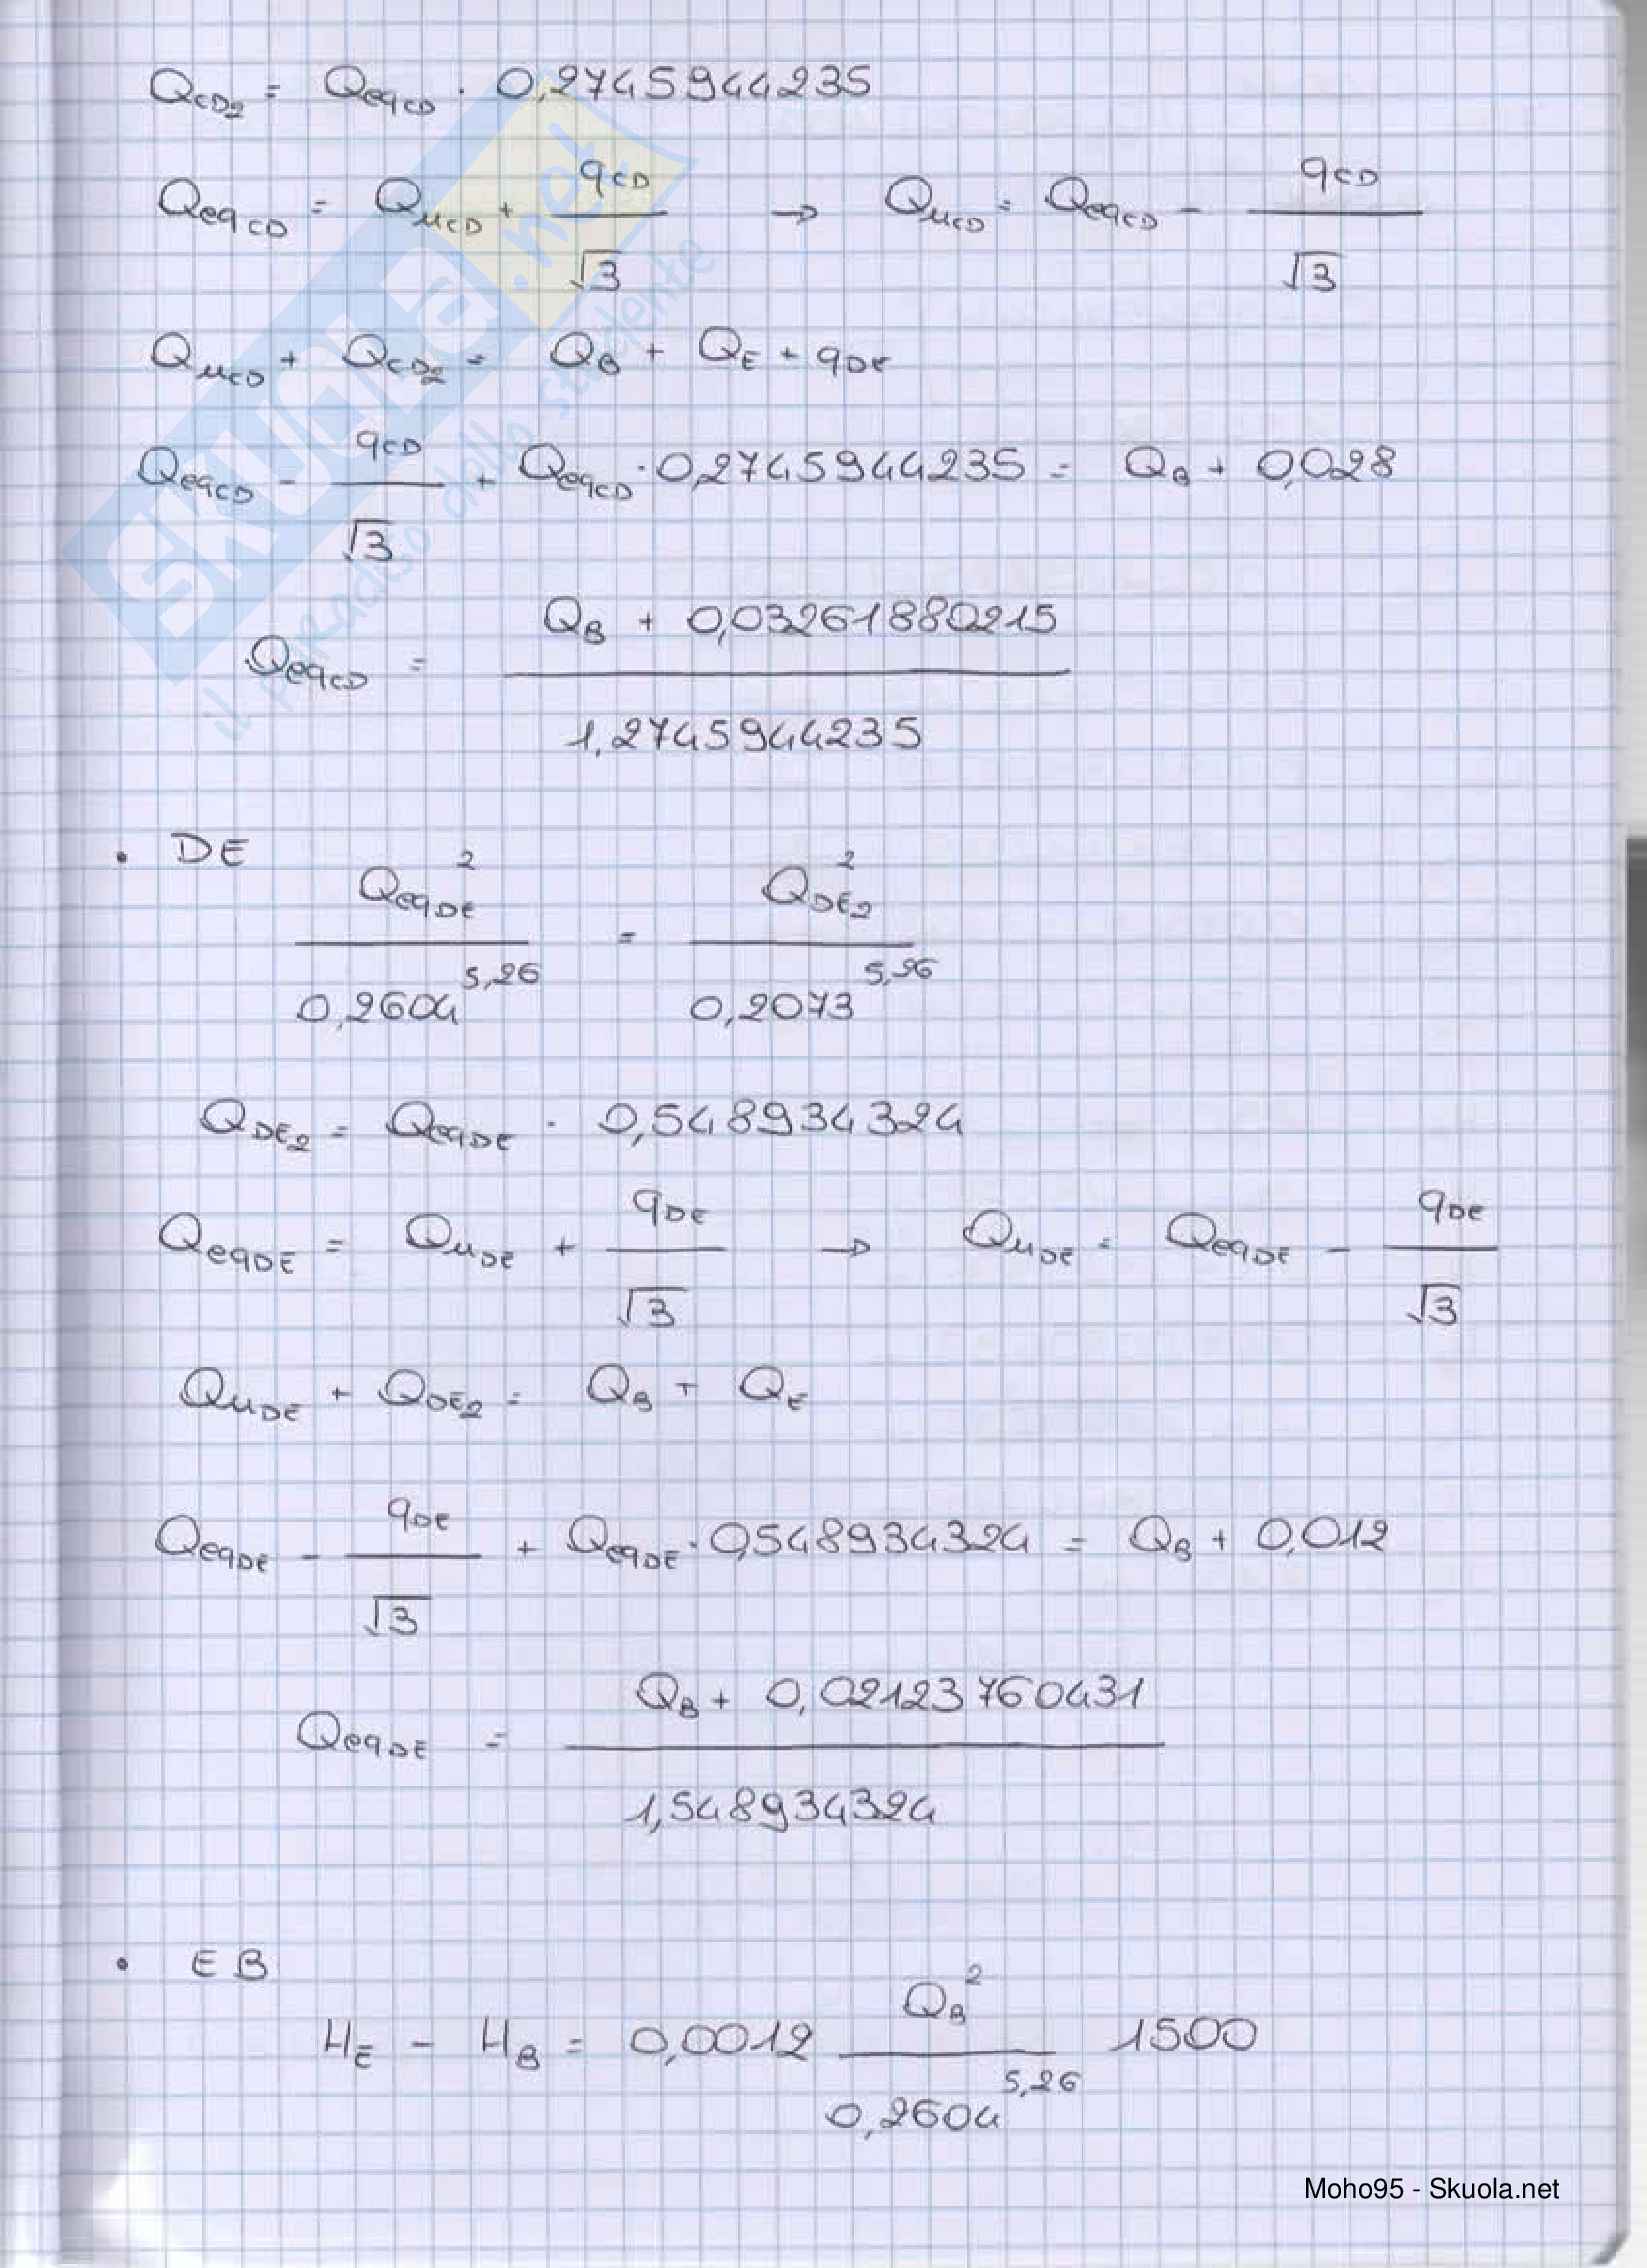 Q_CD2 = Q_eqCD · 0,2745944235
Q_eqCD = Q_uCD + q_CD / √3 → Q_uCD = Q_eqCD - q_CD / √3
Q_uCD + Q_CD2 = Q_B + Q_E + q_DE
Q_eqCD - q_CD / √3 + Q_eqCD · 0,2745944235 = Q_B + 0,028
Q_eqCD = (Q_B + 0,03261880215) / 1,2745944235
• DE
Q_eqDE² / 0,2604^5,26 = Q_DE2² / 0,2073^5,26
Q_DE2 = Q_eqDE · 0,548934324
Q_eqDE = Q_uDE + q_DE / √3 → Q_uDE = Q_eqDE - q_DE / √3
Q_uDE + Q_DE2 = Q_B + Q_E
Q_eqDE - q_DE / √3 + Q_eqDE · 0,548934324 = Q_B + 0,012
Q_eqDE = (Q_B + 0,02123760431) / 1,548934324
• EB
H_E - H_B = 0,0012 Q_B² / 0,2604^5,26 1500
skuola.net
il paradiso dello studente
Moho95 - Skuola.net